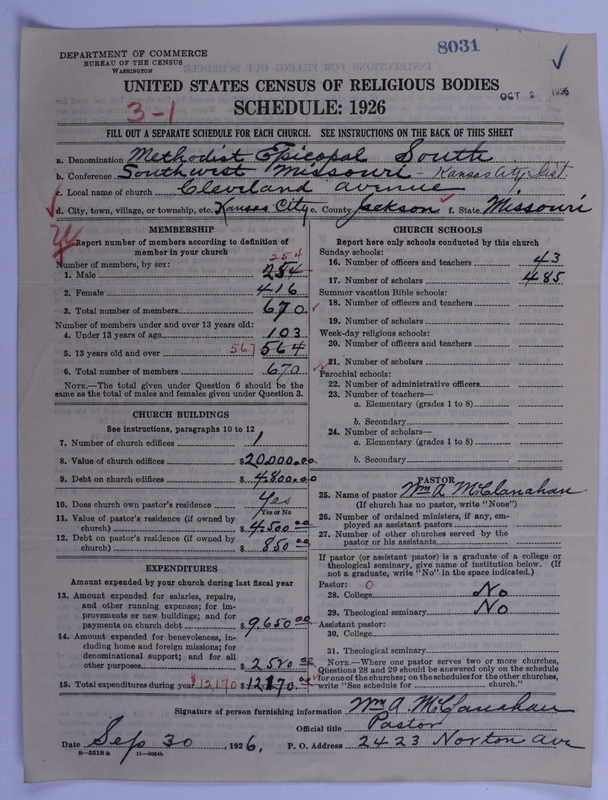 8031
DEPARTMENT OF COMMERCE
BUREAU OF THE CENSUS
WASHINGTON
UNITED STATES CENSUS OF RELIGIOUS BODIES
OCT 2 1926
3-1
SCHEDULE: 1926
FILL OUT A SEPARATE SCHEDULE FOR EACH CHURCH. SEE INSTRUCTIONS ON THE BACK OF THIS SHEET
a. Denomination Methodist Episcopal South
b. Conference Southwest Missouri - Kansas City Dist.
c. Local name of church Cleveland avenue
d. City, town, village, or township, etc. Kansas City e. County Jackson f. State Missouri
MEMBERSHIP
Report number of members according to definition of
member in your church
Number of members, by sex:
254
1. Male 254
2. Female 416
3. Total number of members 670
Number of members under and over 13 years old:
4. Under 13 years of age 103
5. 13 years old and over 567 564
6. Total number of members 670
NOTE.—The total given under Question 6 should be the
same as the total of males and females given under Question 3.
CHURCH BUILDINGS
See instructions, paragraphs 10 to 12
7. Number of church edifices 1
8. Value of church edifices $20000.00
9. Debt on church edifices $4800.00
10. Does church own pastor's residence Yes
Yes or No
11. Value of pastor's residence (if owned by
church) $4,500 00
12. Debt on pastor's residence (if owned by
church) $850 00
EXPENDITURES
Amount expended by your church during last fiscal year
13. Amount expended for salaries, repairs,
and other running expenses; for im-
provements or new buildings; and for
payments on church debt $9,650 00
14. Amount expended for benevolences, in-
cluding home and foreign missions; for
denominational support; and for all
other purposes $2520 00
15. Total expenditures during year $12,170 $12170.00
CHURCH SCHOOLS
Report here only schools conducted by this church
Sunday schools:
16. Number of officers and teachers 43
17. Number of scholars 485
Summer vacation Bible schools:
18. Number of officers and teachers
19. Number of scholars
Week-day religious schools:
20. Number of officers and teachers
21. Number of scholars
Parochial schools:
22. Number of administrative officers
23. Number of teachers—
a. Elementary (grades 1 to 8)
b. Secondary
24. Number of scholars—
a. Elementary (grades 1 to 8)
b. Secondary
PASTOR
25. Name of pastor Wm A McClanahan
(If church has no pastor, write "None")
26. Number of ordained ministers, if any, em-
ployed as assistant pastors
27. Number of other churches served by the
pastor or his assistants
If pastor (or assistant pastor) is a graduate of a college or
theological seminary, give name of institution below. (If
not a graduate, write "No" in the space indicated.)
Pastor: 0
28. College No
29. Theological seminary No
Assistant pastor:
30. College
31. Theological seminary
NOTE.—Where one pastor serves two or more churches,
Questions 28 and 29 should be answered only on the schedule
for one of the churches; on the schedules for the other churches,
write "See schedule for church."
Signature of person furnishing information Wm A. McClanahan
Official title Pastor
Date Sep 30, 1926. P. O. Address 2423 Norton Ave
8—5518 a